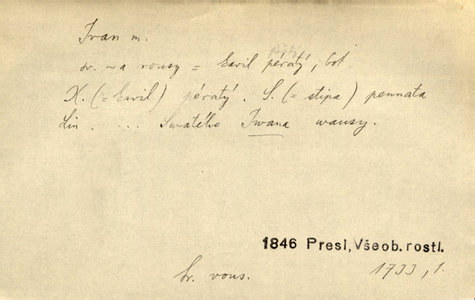 Ivan m.
sv. ~a vousy = kavil pératý; bot.
K. (= kavil) pératý. S. (= stipa) pennata
Lin. ... Swatého Iwana wausy.
1846 Presl, Všeob. rostl.
1733, 1.
Sr. vous.